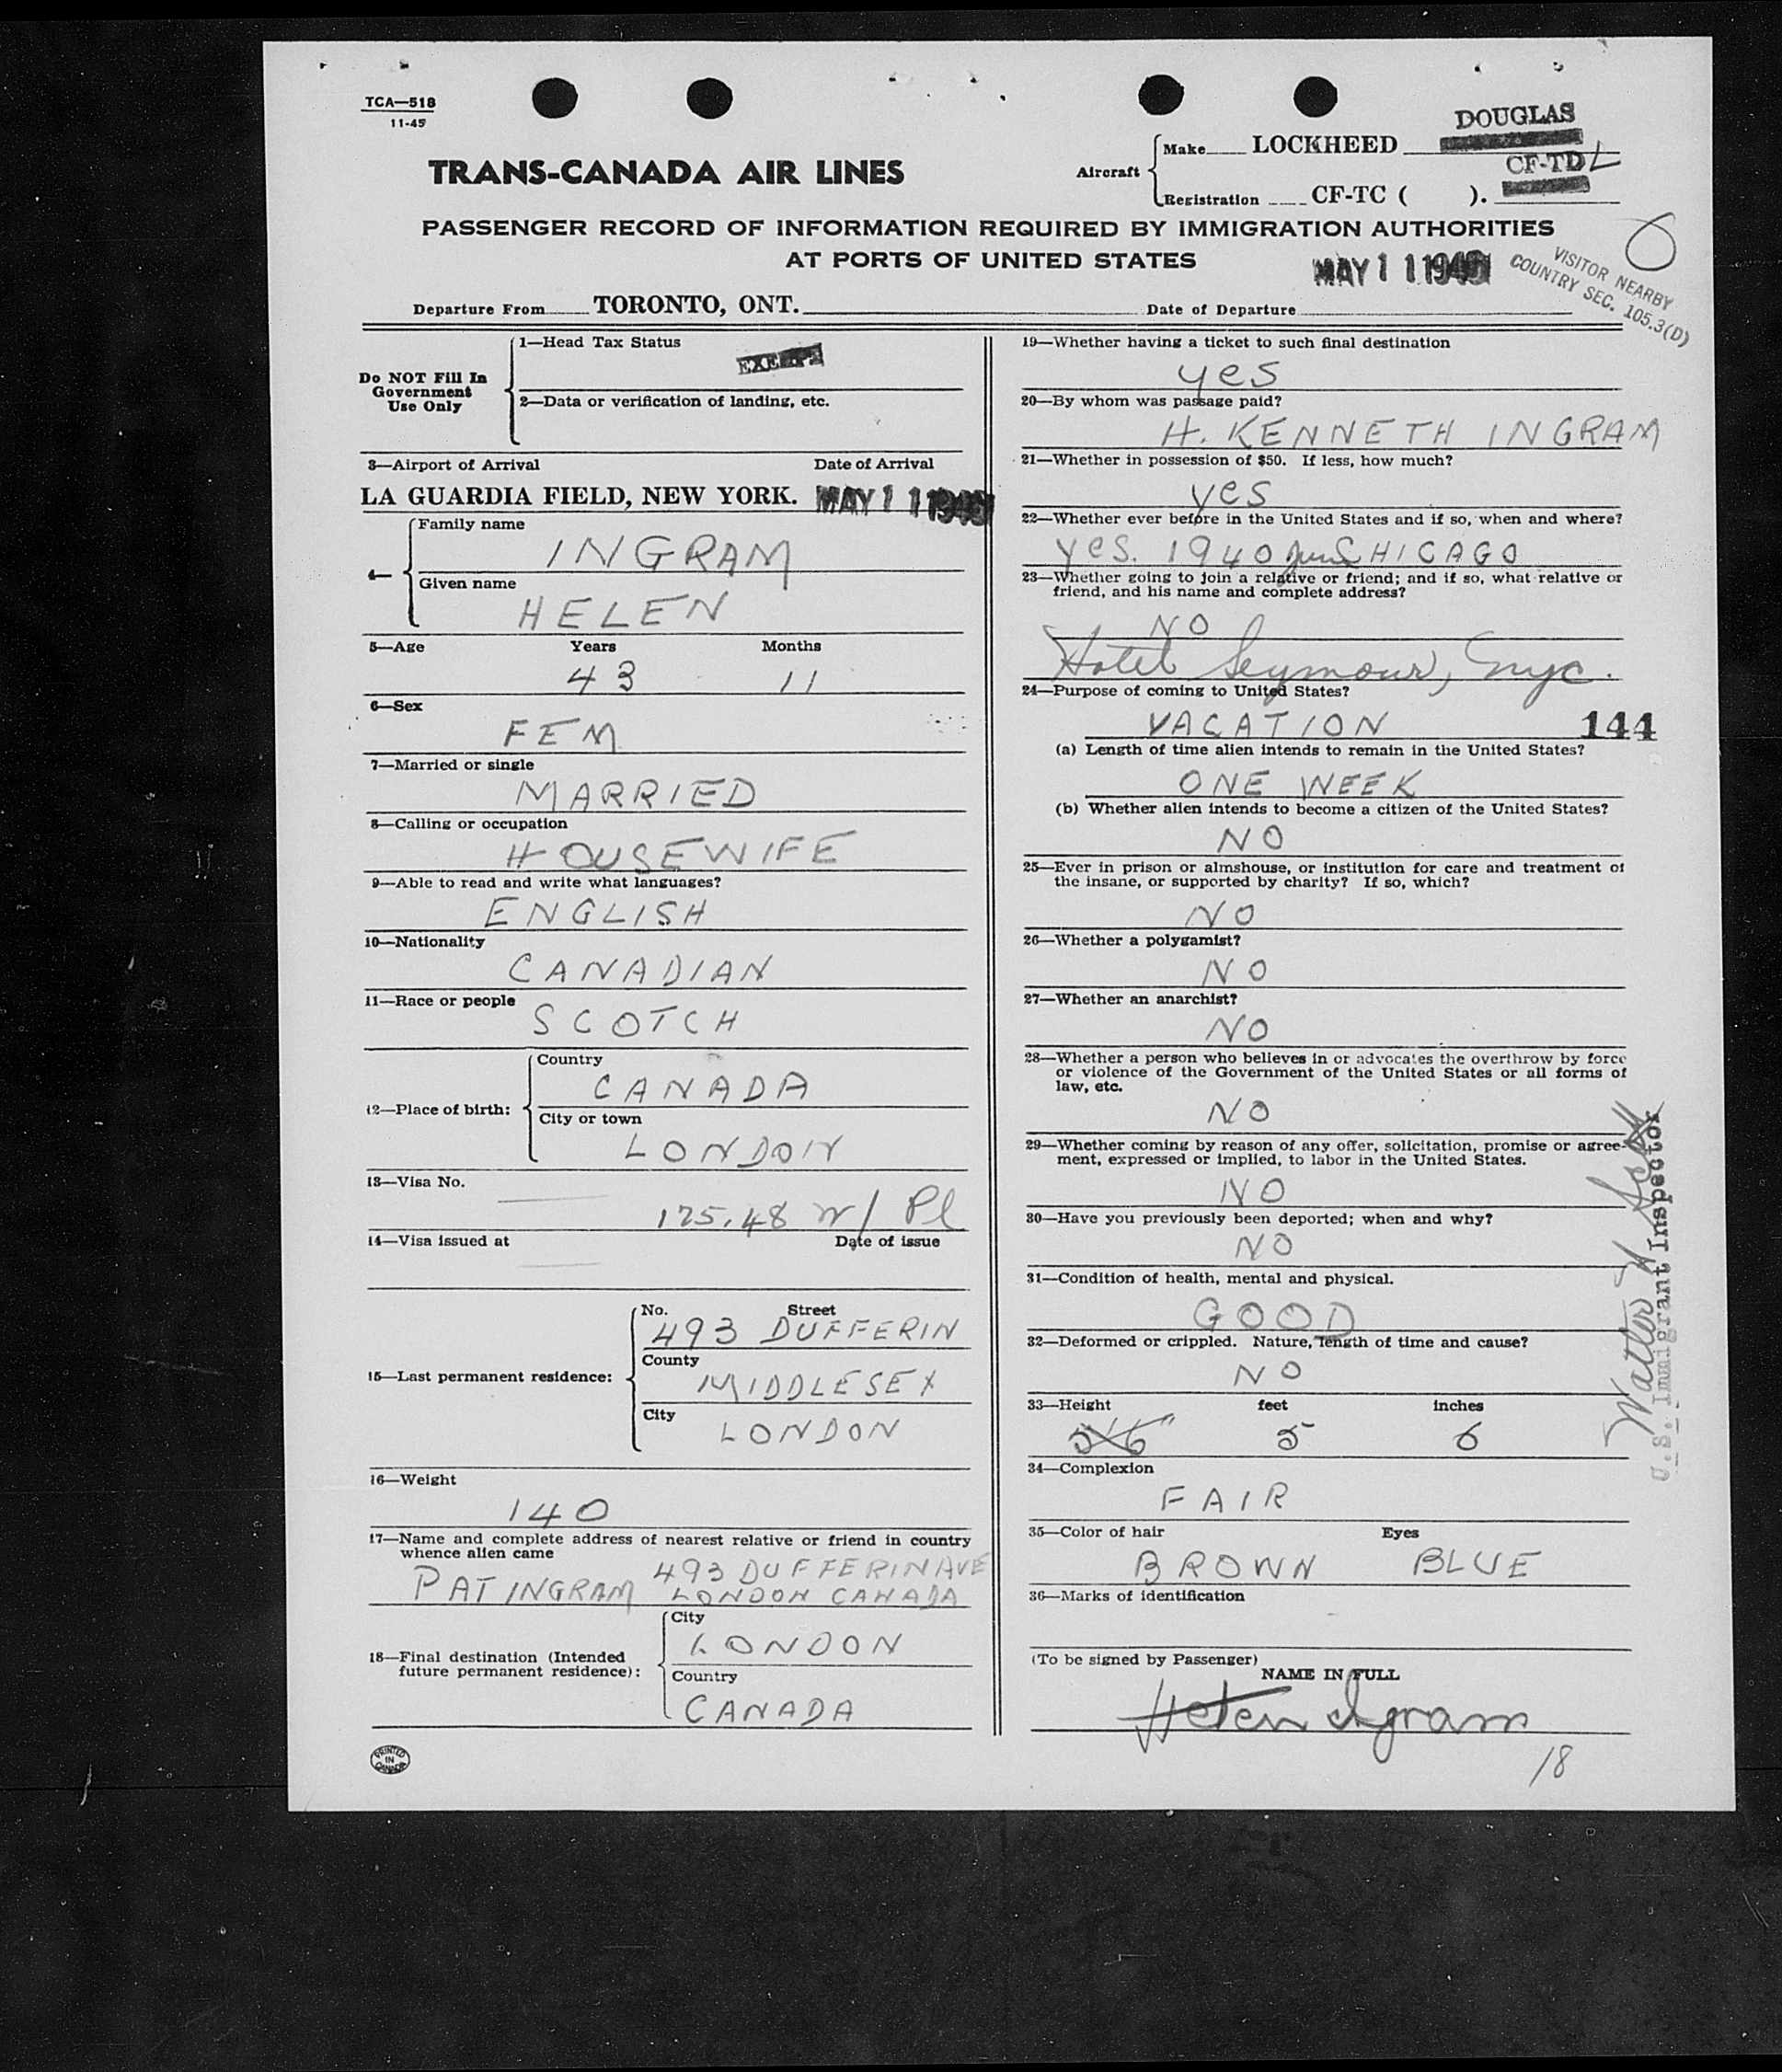 TCA—518
11-45
TRANS-CANADA AIR LINES
Aircraft
Make LOCKHEED
DOUGLAS
Registration CF-TC ( ).
CF-TDL
PASSENGER RECORD OF INFORMATION REQUIRED BY IMMIGRATION AUTHORITIES
AT PORTS OF UNITED STATES
MAY 11
VISITOR NEARBY
COUNTRY SEC. 105.3(D)
Departure From TORONTO, ONT.
Date of Departure
Do NOT Fill In
Government
Use Only
1—Head Tax Status
EXEMPT
2—Data or verification of landing, etc.
3—Airport of Arrival Date of Arrival
LA GUARDIA FIELD, NEW YORK. MAY 11
4—
Family name
INGRAM
Given name
HELEN
5—Age Years Months
43 11
6—Sex
FEM
7—Married or single
MARRIED
8—Calling or occupation
HOUSEWIFE
9—Able to read and write what languages?
ENGLISH
10—Nationality
CANADIAN
11—Race or people
SCOTCH
12—Place of birth:
Country
CANADA
City or town
LONDON
13—Visa No.
175.48 w/ Pl
14—Visa issued at Date of issue
15—Last permanent residence:
No. Street
493 DUFFERIN
County
MIDDLESEX
City
LONDON
16—Weight
140
17—Name and complete address of nearest relative or friend in country
whence alien came
PAT INGRAM 493 DUFFERIN AVE
LONDON CANADA
18—Final destination (Intended
future permanent residence):
City
LONDON
Country
CANADA
PRINTED
IN
CANADA
19—Whether having a ticket to such final destination
yes
20—By whom was passage paid?
H. KENNETH INGRAM
21—Whether in possession of $50. If less, how much?
yes
22—Whether ever before in the United States and if so, when and where?
yes. 1940 June CHICAGO
23—Whether going to join a relative or friend; and if so, what relative or
friend, and his name and complete address?
NO
Hotel Seymour, nyc.
24—Purpose of coming to United States?
VACATION
144
(a) Length of time alien intends to remain in the United States?
ONE WEEK
(b) Whether alien intends to become a citizen of the United States?
NO
25—Ever in prison or almshouse, or institution for care and treatment of
the insane, or supported by charity? If so, which?
NO
26—Whether a polygamist?
NO
27—Whether an anarchist?
NO
28—Whether a person who believes in or advocates the overthrow by force
or violence of the Government of the United States or all forms of
law, etc.
NO
29—Whether coming by reason of any offer, solicitation, promise or agree-
ment, expressed or implied, to labor in the United States.
NO
30—Have you previously been deported; when and why?
NO
31—Condition of health, mental and physical.
GOOD
32—Deformed or crippled. Nature, length of time and cause?
NO
33—Height feet inches
5'6" 5 6
34—Complexion
FAIR
35—Color of hair Eyes
BROWN BLUE
36—Marks of identification
(To be signed by Passenger)
NAME IN FULL
Helen Ingram
18
Walter
U.S. Immigrant Inspector